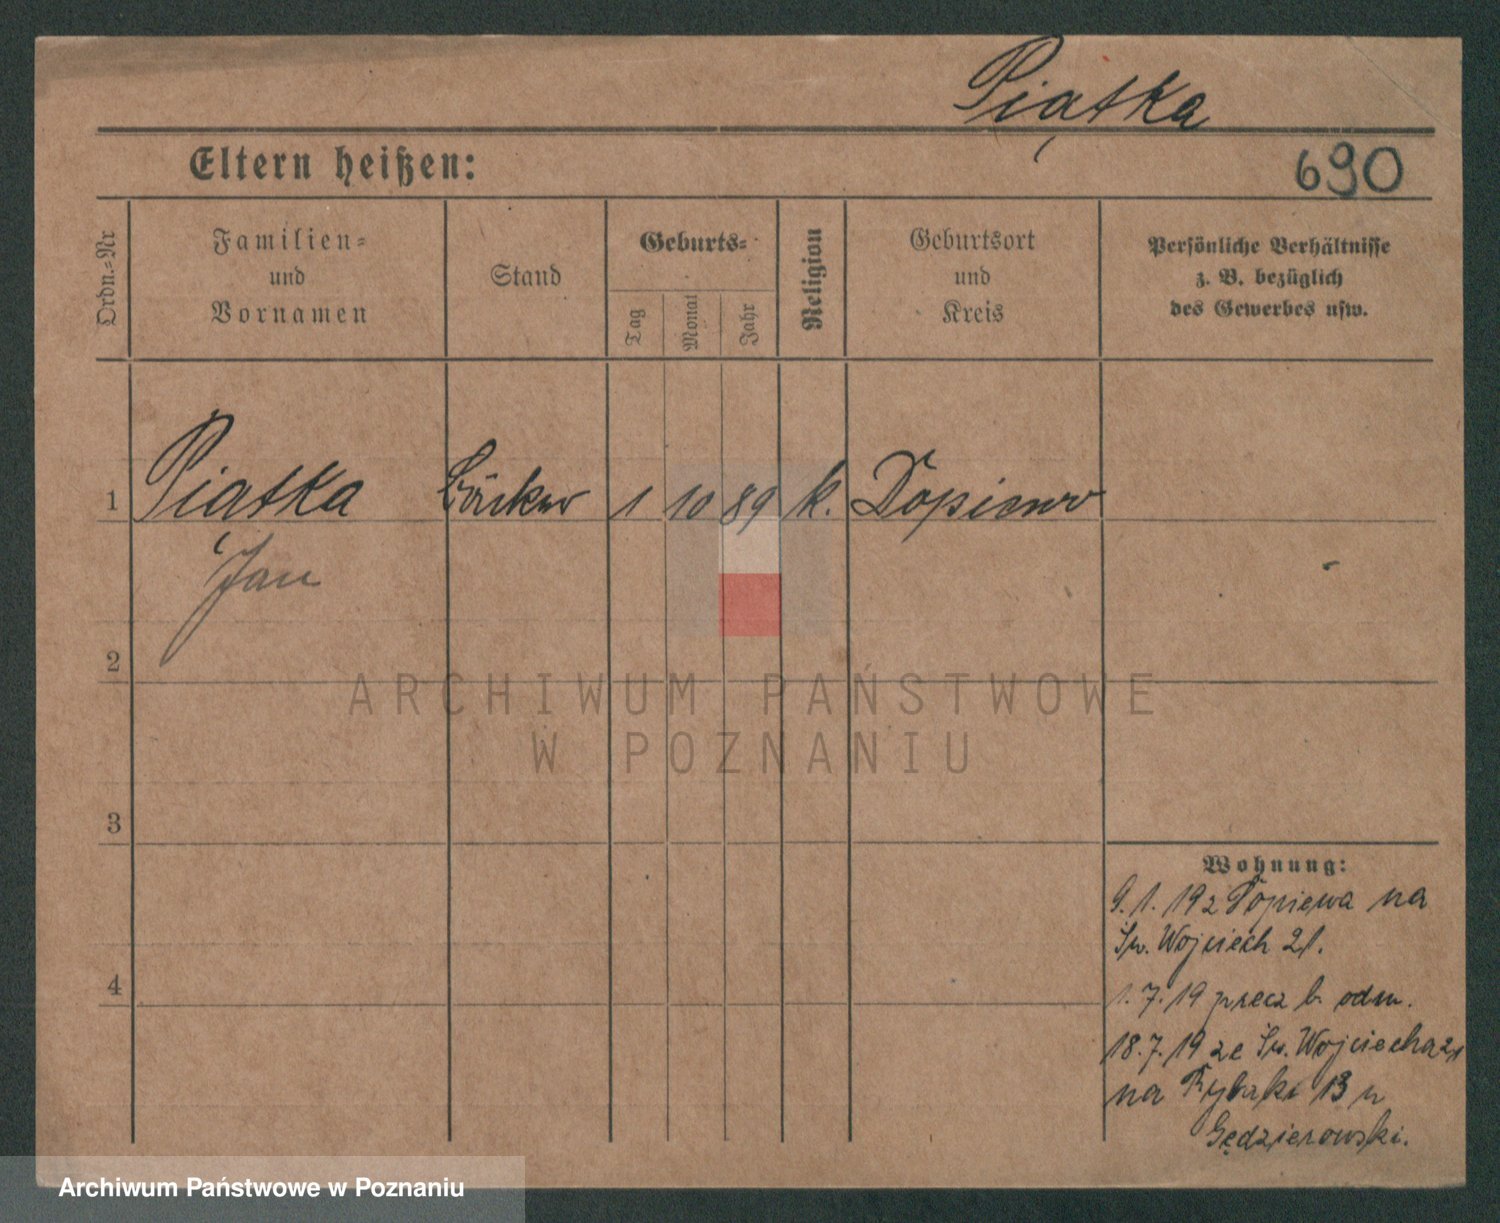 Piątka
Eltern heißen:
690
Ordn.=Nr
Familien=
und
Vornamen
Stand
Geburts=
Tag
Monat
Jahr
Religion
Geburtsort
und
Kreis
Persönliche Verhältnisse
z. B. bezüglich
des Gewerbes usw.
1 Piatka Bäcker 1 10 89 k. Dopiewo
Jan
2
3
4
Wohnung:
9.1.19 z Dopiewa na
Św. Wojciech 21.
1.7.19 precz b. odm.
18.7.19 ze Św. Wojciecha 21
na Rybaki 13 u
ARCHIWUM PAŃSTWOWE
W POZNANIU
Archiwum Państwowe w Poznaniu